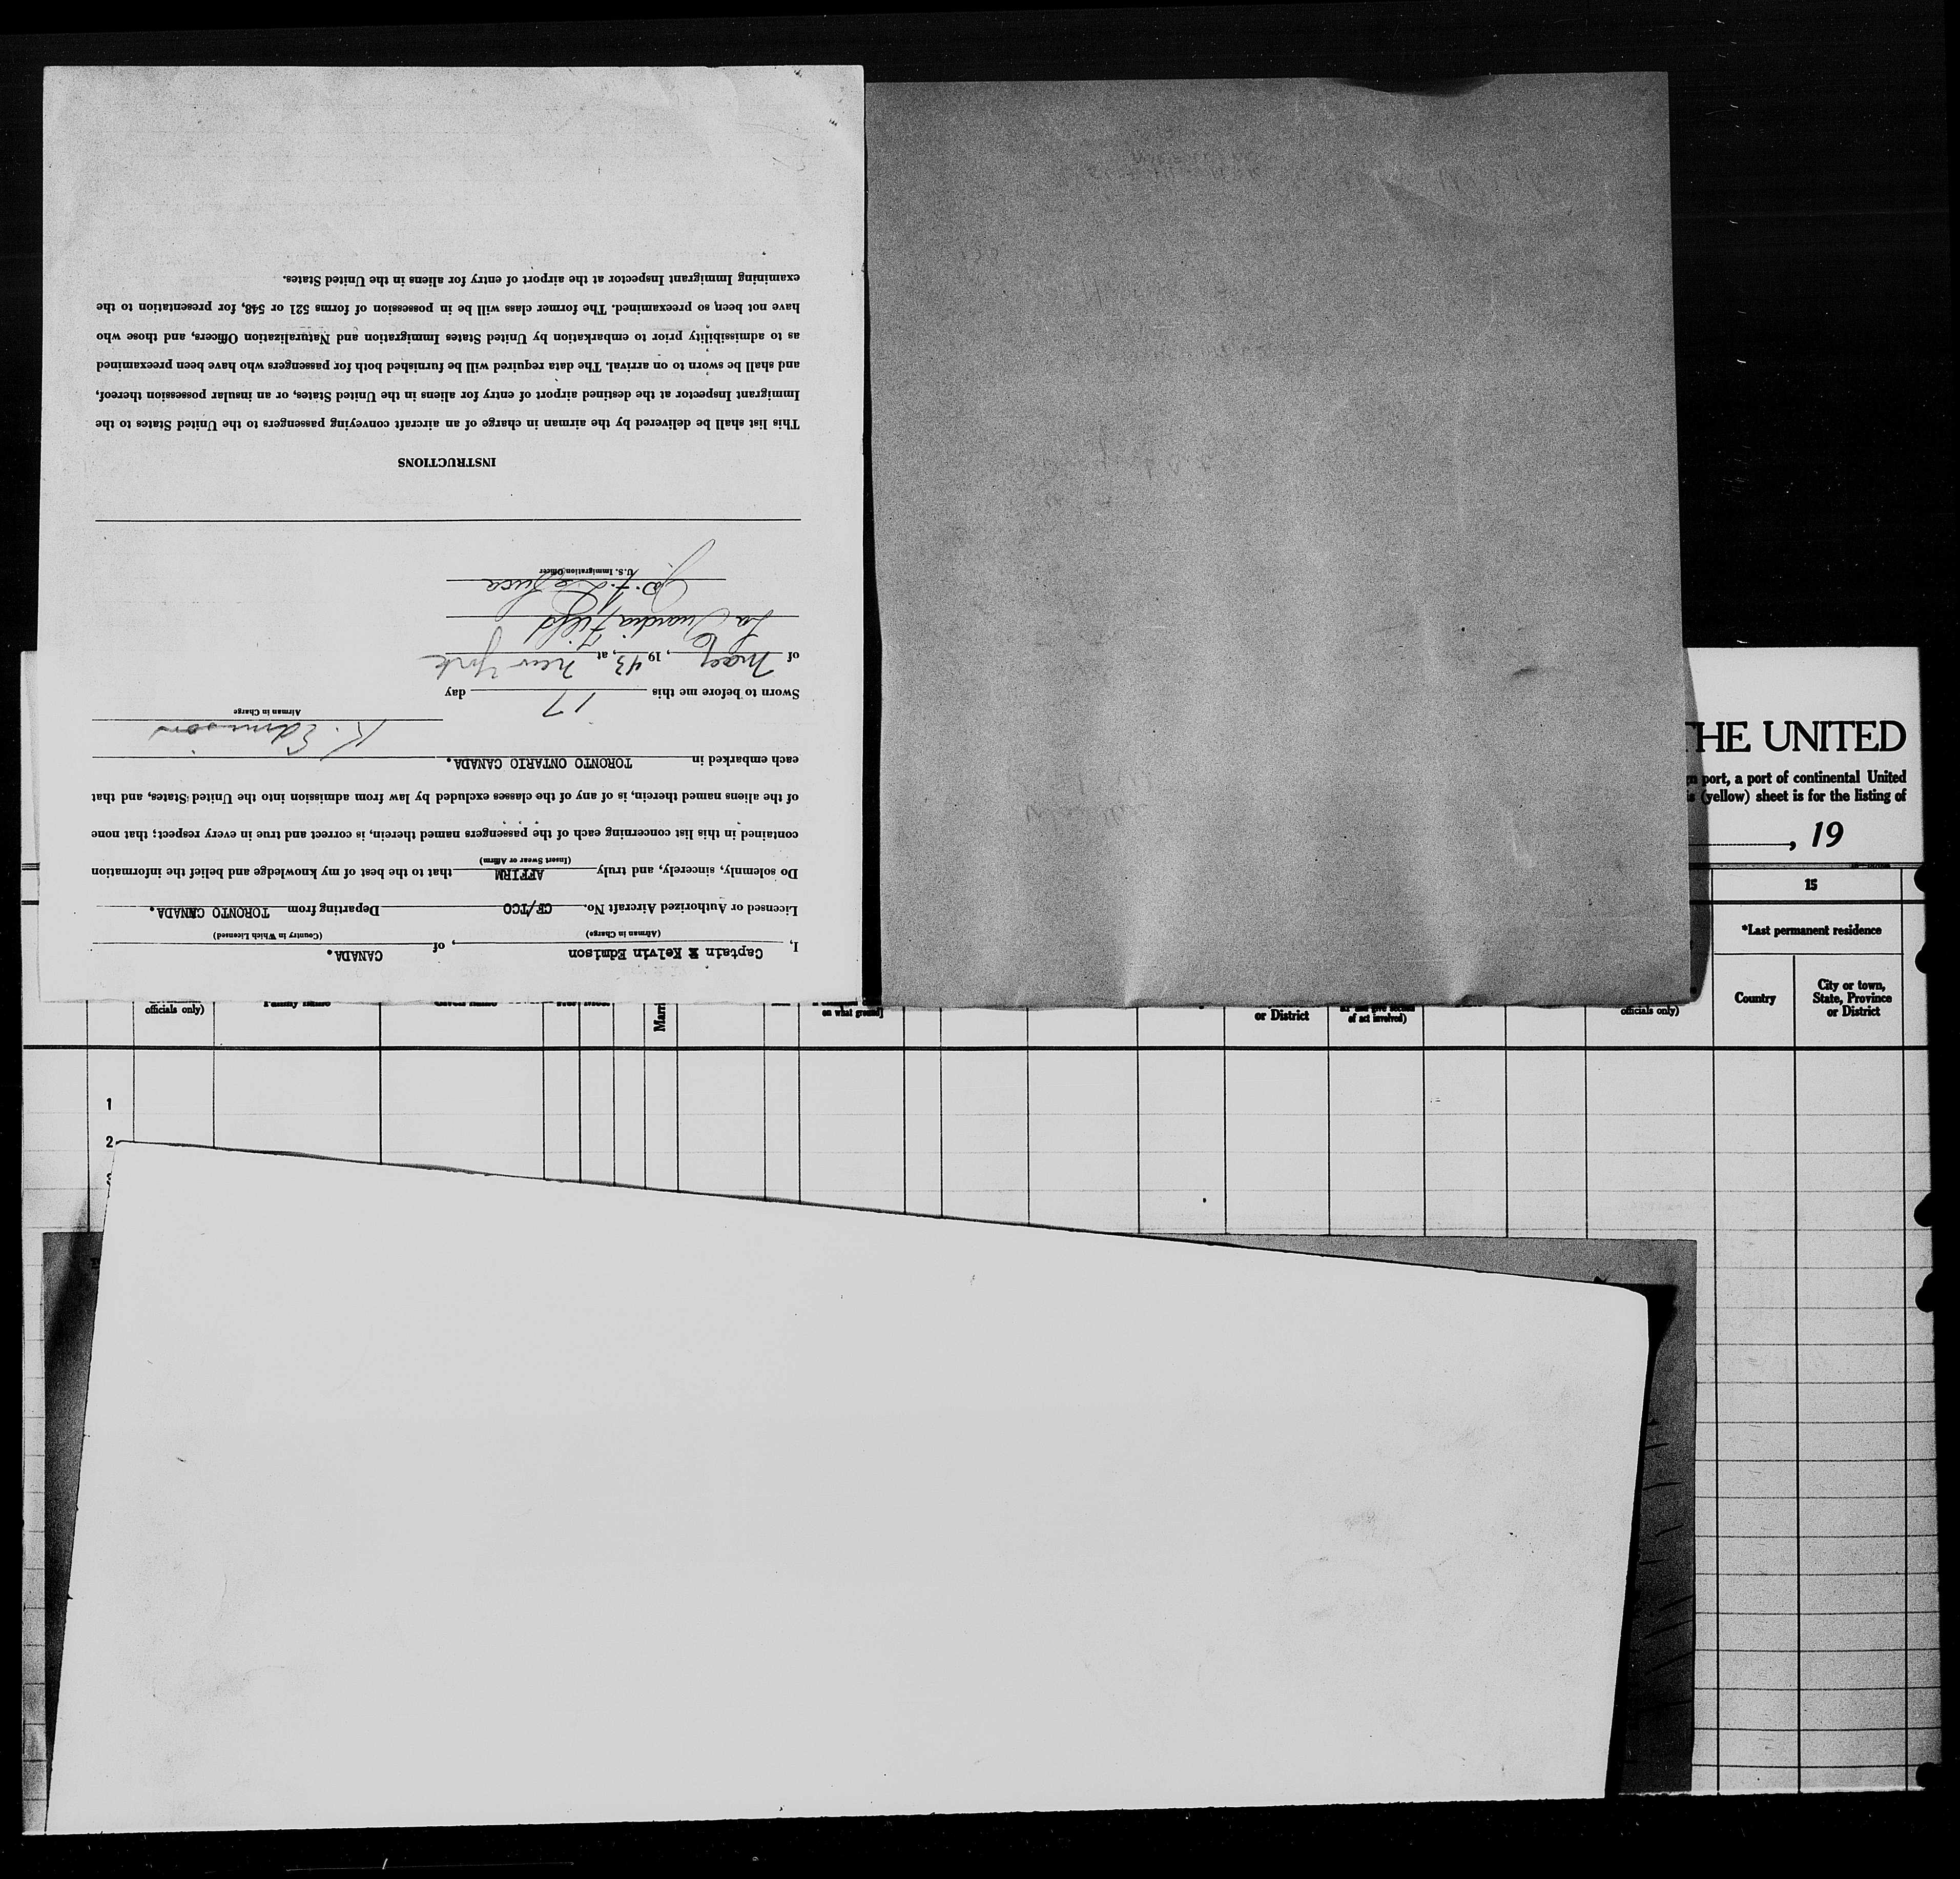 I, Captain K Kelvin Edmison, of CANADA.
(Airman in Charge) (Country in Which Licensed)
Licensed or Authorized Aircraft No. CF/TCO Departing from TORONTO CANADA.
Do solemnly, sincerely, and truly AFFIRM that to the best of my knowledge and belief the information
(Insert Swear or Affirm)
contained in this list concerning each of the passengers named therein, is correct and true in every respect; that none
of the aliens named therein, is of any of the classes excluded by law from admission into the United States, and that
each embarked in TORONTO ONTARIO CANADA.
K. Edmison
Airman in Charge
Sworn to before me this 17 day
of , 1943, at New York
La Guardia Field
U.S. Immigration Officer
INSTRUCTIONS
This list shall be delivered by the airman in charge of an aircraft conveying passengers to the United States to the
Immigrant Inspector at the destined airport of entry for aliens in the United States, or an insular possession thereof,
and shall be sworn to on arrival. The data required will be furnished both for passengers who have been preexamined
as to admissibility prior to embarkation by United States Immigration and Naturalization Officers, and those who
have not been so preexamined. The former class will be in possession of forms 521 or 548, for presentation to the
examining Immigrant Inspector at the airport of entry for aliens in the United States.
THE UNITED
port, a port of continental United
(yellow) sheet is for the listing of
, 19
15
*Last permanent residence
Country
City or town,
State, Province
or District
officials only)
Family name
Given name
on what ground]
or District
of act involved)
officials only)
1
2